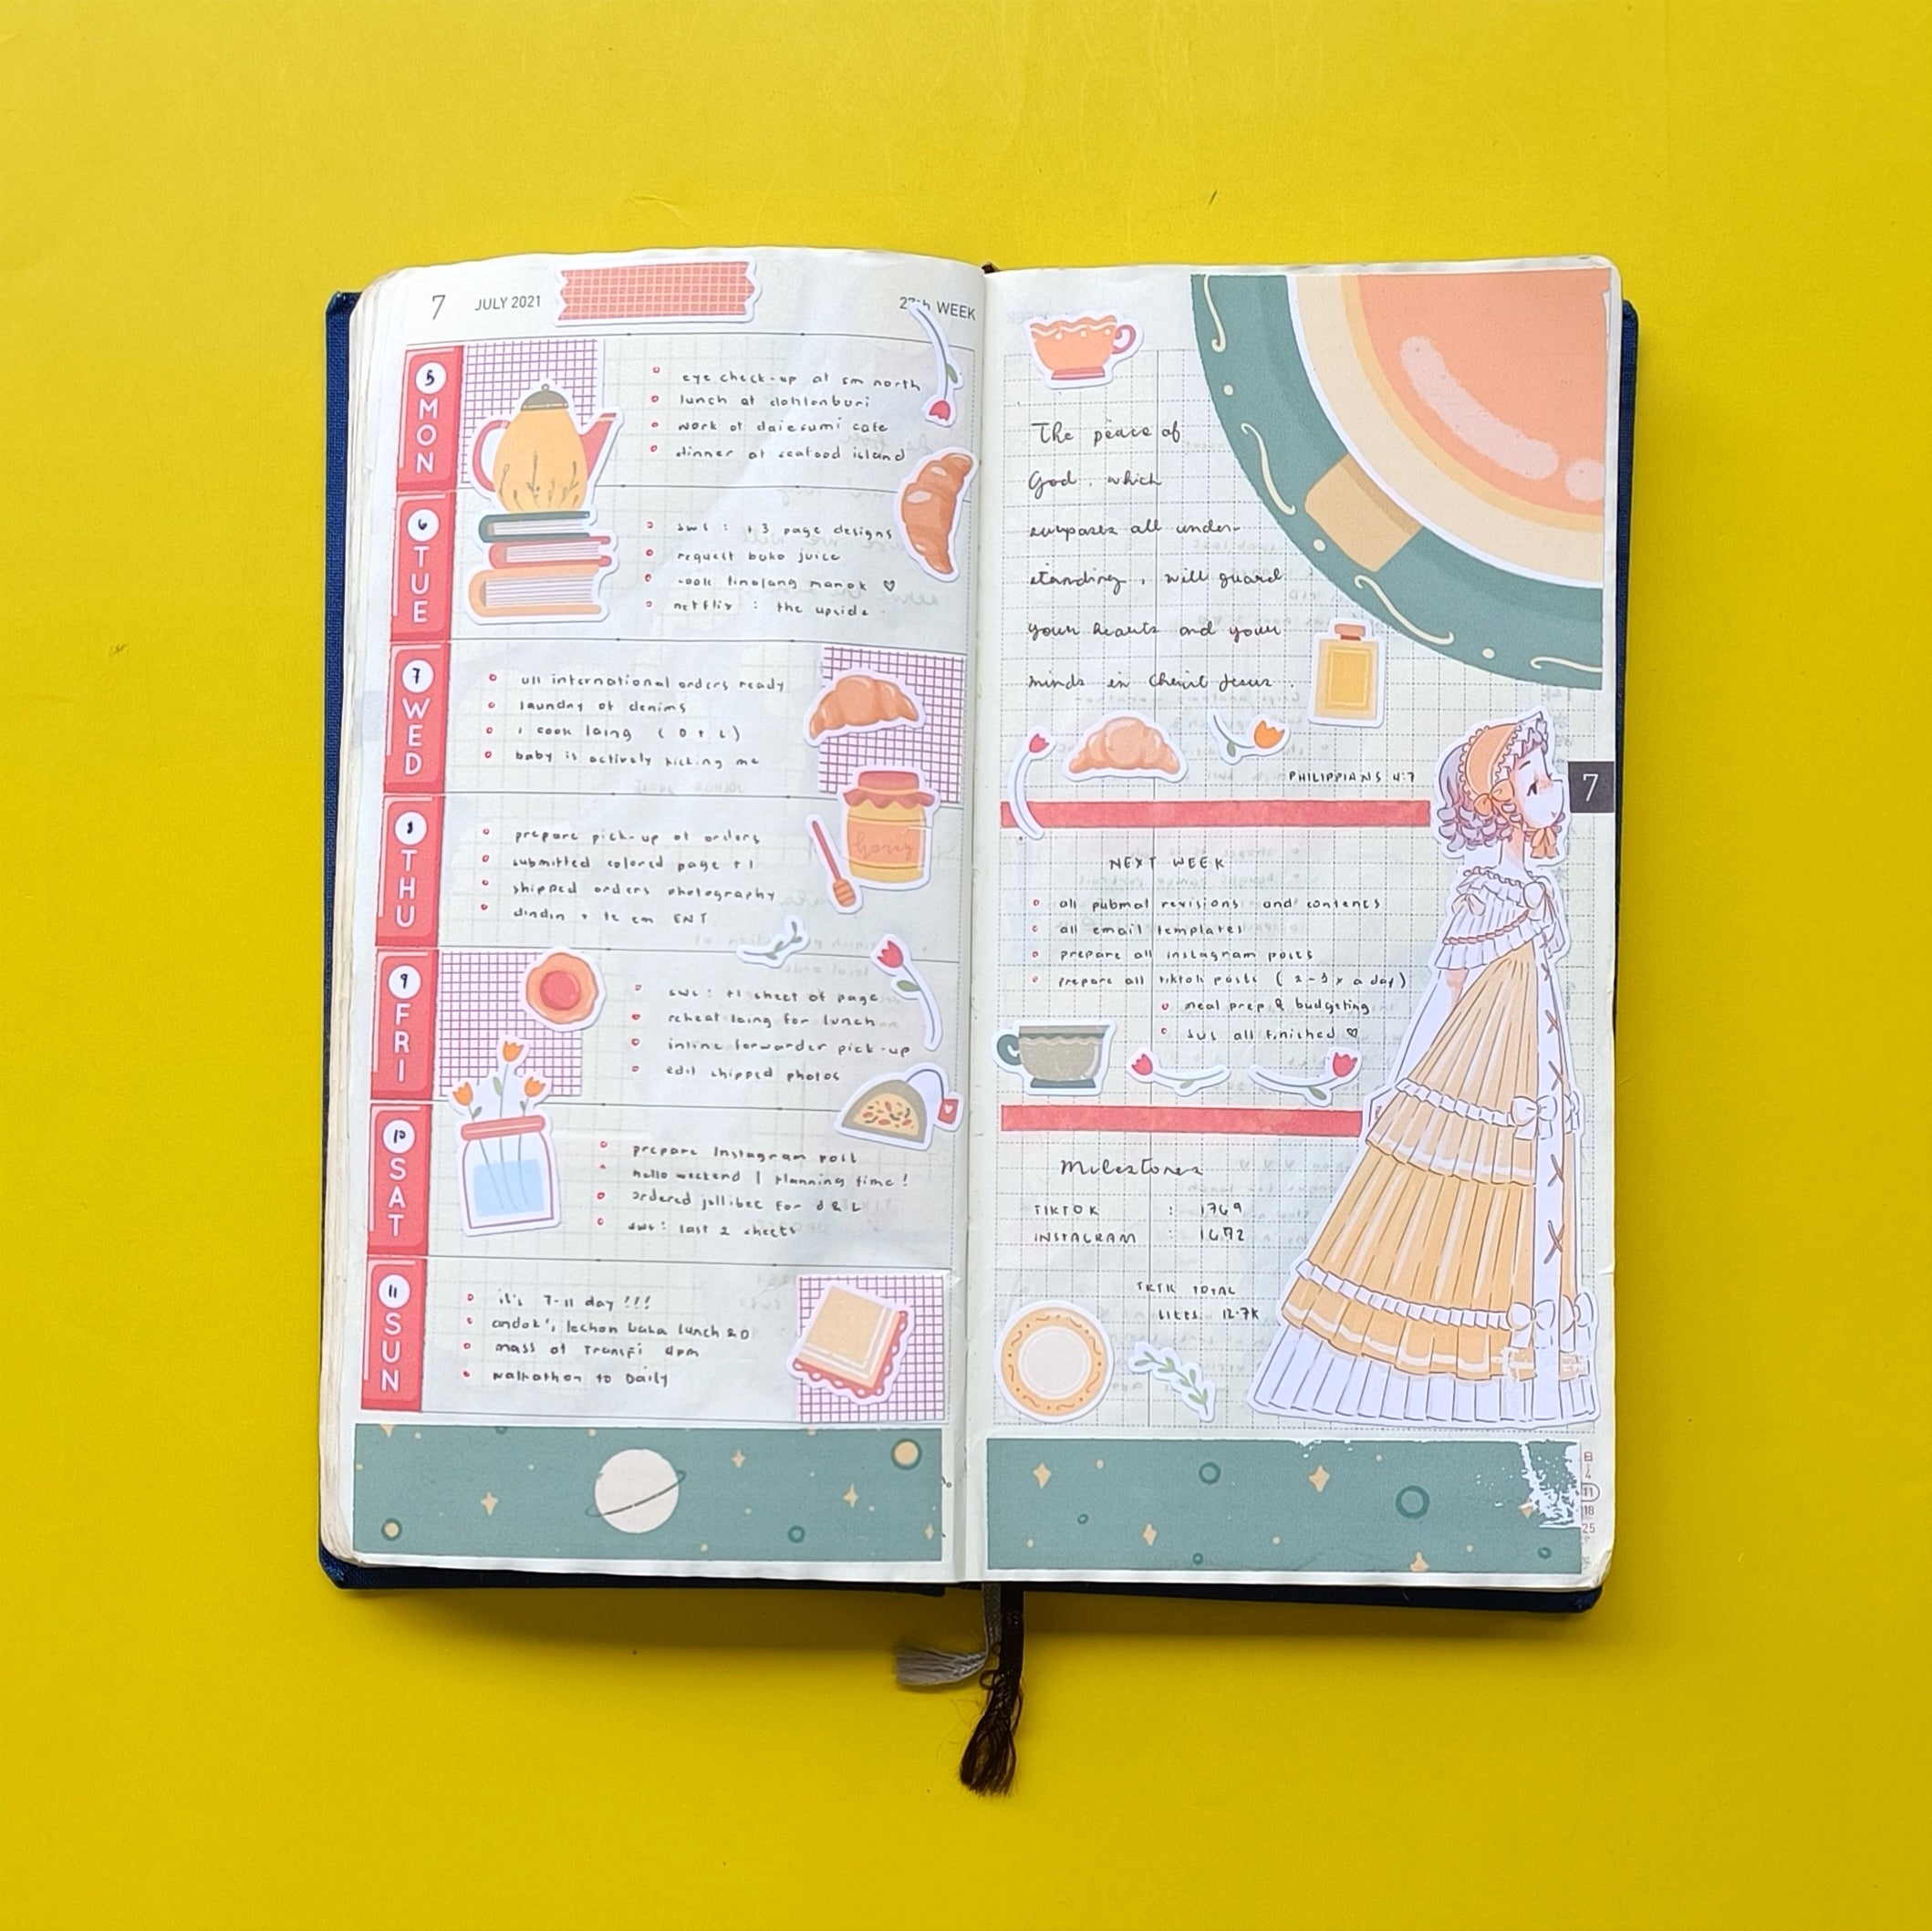 7 JULY 2021
27th WEEK
5
MON
eye check-up at sm north
lunch at
work at cafe
dinner at seafood island
6
TUE
sws : +3 page designs
request buko juice
cook tinolang manok ♡
netflix : the upside
7
WED
all international orders ready
laundry of denims
i cook laing ( D + L )
baby is actively kicking me
8
THU
prepare pick-up of orders
submitted colored page +1
shipped orders photography
dindin
9
FRI
sws : +1 sheet of page
reheat laing for lunch
inline forwarder pick-up
edit shipped photos
10
SAT
prepare Instagram post
hello weekend | planning time !
ordered jollibee for d & L
sws : last 2 sheets
11
SUN
it's 7-11 day !!!
andok's lechon baka lunch
mass at 4pm
walkathon to Daily
honey
The peace of
God, which
surpasses all under-
standing, will guard
your hearts and your
minds in Christ Jesus.
PHILIPPIANS 4:7
7
NEXT WEEK
all pubmat revisions and contents
all email templates
prepare all instagram posts
prepare all tiktok posts ( 2-3 x a day )
meal prep & budgeting
sws all finished ♡
Milestones
TIKTOK : 1769
INSTAGRAM : 1672
TKTK TOTAL
LIKES 12.7K
日
4
11
18
25